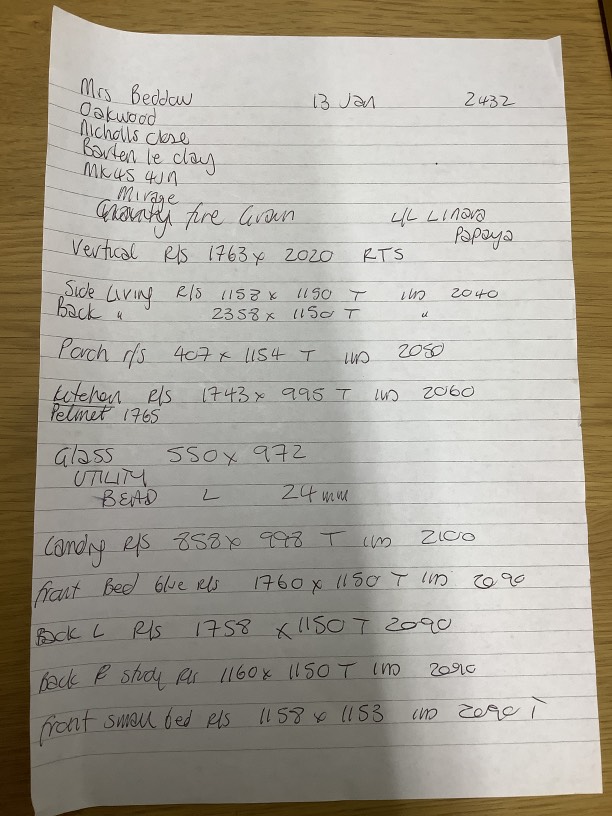 Mrs Beddow 13 Jan 2432
Oakwood
Nicholls close
Barten le clay
MK45 4JN
Mirage
fire Grain L/L Linova
Papaya
Vertical R/s 1763 x 2020 RTS
Side Living R/s 1158 x 1150 T 2040
Back " 2358 x 1150 T "
Porch r/s 407 x 1154 T 2050
Kitchen R/s 1743 x 995 T 2060
Pelmet 1765
Glass 550 x 972
UTILITY
BEAD L 24mm
Landing R/s 858 x 998 T 2100
front Bed blue R/s 1760 x 1150 T 2090
Back L R/s 1758 x 1150 T 2090
Back R study R/s 1160 x 1150 T 2090
front small bed R/s 1158 x 1153 2090 T